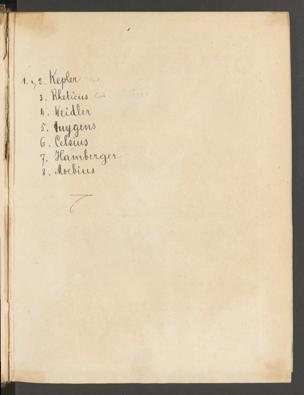 1. u. 2. Kepler
3. Rheticus
4. Weidler
5. Huygens
6. Celsius
7. Hamberger
8. Moebius